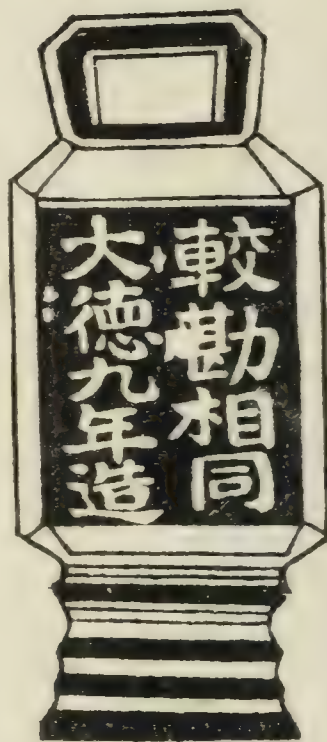 較勘相同
大德九年造